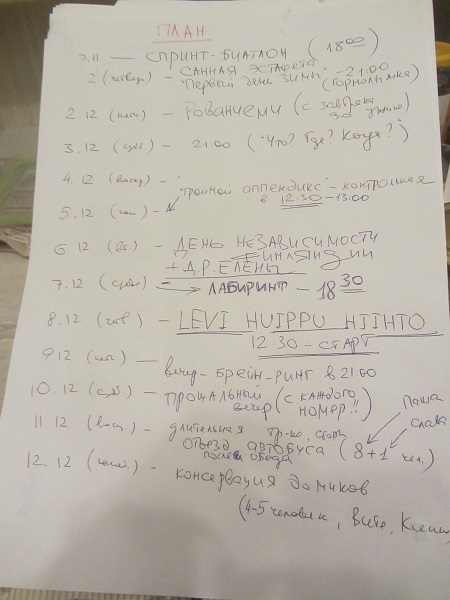 ПЛАН
— СПРИНТ-БИАТЛОН (18 00)
САННАЯ ЭСТАФЕТА
2 (четверг) - "Первый день зимы" -21:00
(горнолыжка)
2.12 (пятн) - Рованиеми (с завтрака
до ужина)
3.12 (суб) - 21:00 ("Что? Где? Когда?")
4.12 (воскр) -
"тройной аппендикс" - контрольная
в 12:30-13:00
5.12 (пон) -
6.12 (вт.) - ДЕНЬ НЕЗАВИСИМОСТИ
ФИНЛЯНДИИ
+ Д.Р. ЕЛЕНЫ
7.12 (среда) - ЛАБИРИНТ - 18 30
8.12 (чет) - LEVI HUIPPU HIIHTO
12.30 - СТАРТ
9.12 (пят) — вечер - БРЕЙН-РИНГ в 21:00
10.12 (суб) - ПРОЩАЛЬНЫЙ
вечер (с каждого
номер!!)
11.12 (воск) - длительная тр-ка, сборы
Паша
Слава
ОТЪЕЗД АВТОБУСА (8+1 чел.)
после обеда
12.12 (понед) - КОНСЕРВАЦИЯ ДОМИКОВ
(4-5 человек, Витя,